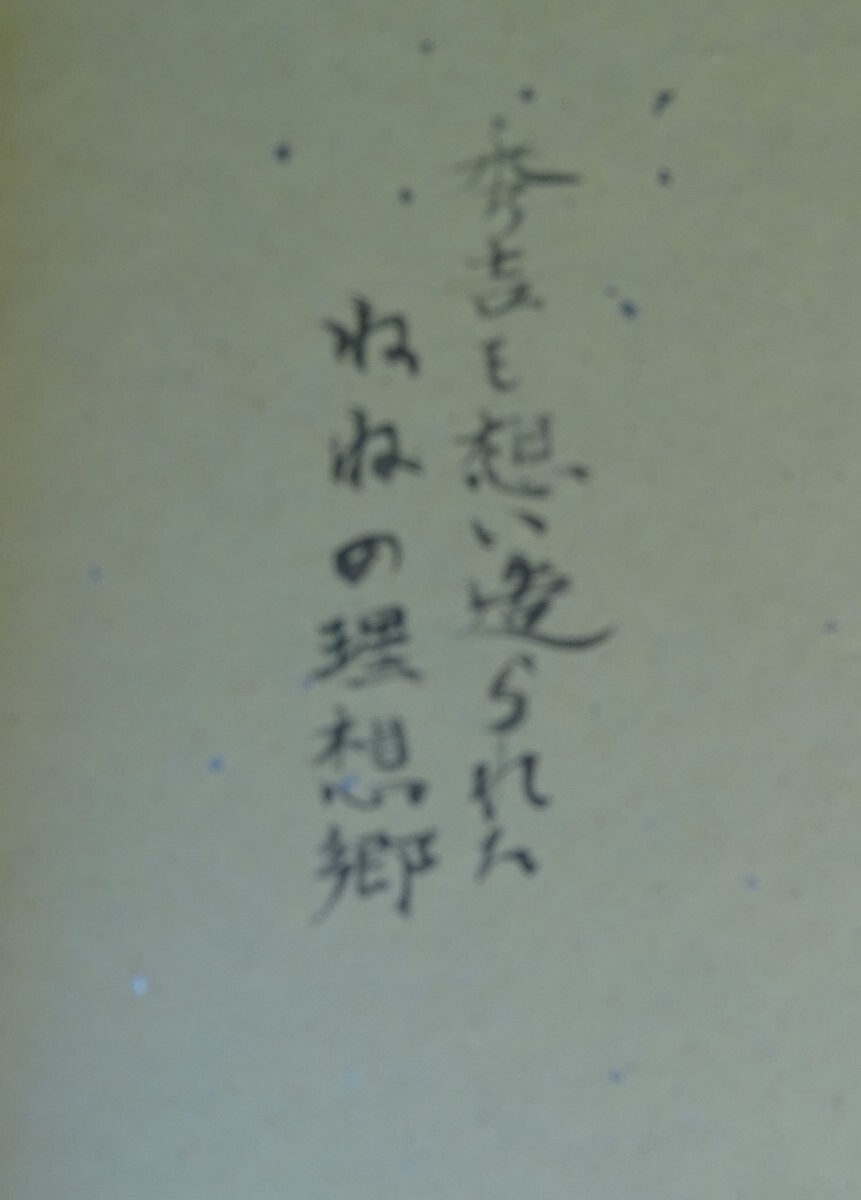 秀吉を想い造られた
ねねの理想郷